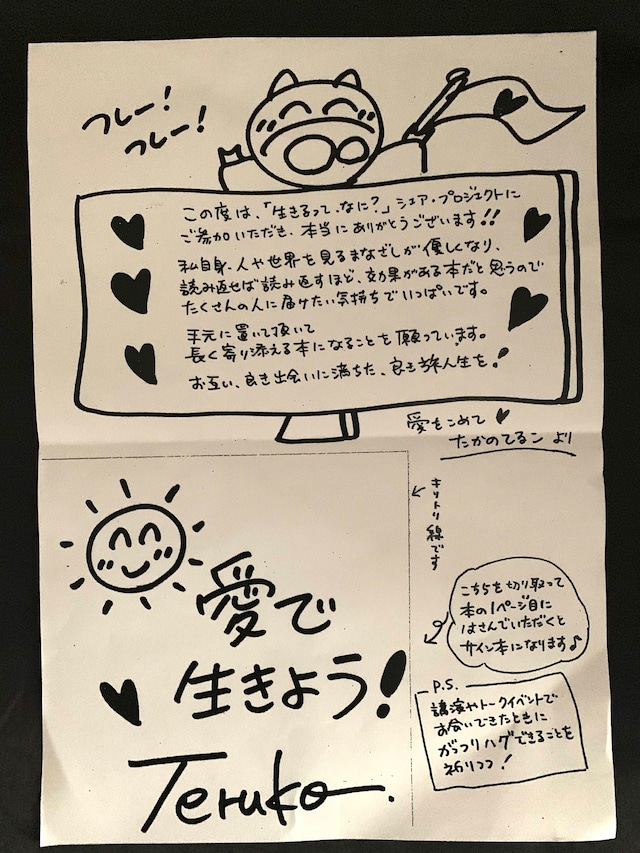 フレー!
フレー!
この度は、「生きるって、なに?」シェア・プロジェクトに
ご参加いただき、本当にありがとうございます!!
私自身、人や世界を見るまなざしが優しくなり、
読み返せば読み返すほど、効果がある本だと思うので
たくさんの人に届けたい気持ちでいっぱいです。
手元に置いて頂いて
長く寄り添える本になることを願っています。
お互い、良き出会いに満ちた、良き旅人生を!
愛をこめて♥
たかのてるこ より
キリトリ線です
こちらを切り取って
本の1ページ目に
はさんでいただくと
サイン本になります♪
愛で
生きよう!
Teruko.
P.S.
講演やトークイベントで
お会いできたときに
がっつりハグできることを
祈りつつ!